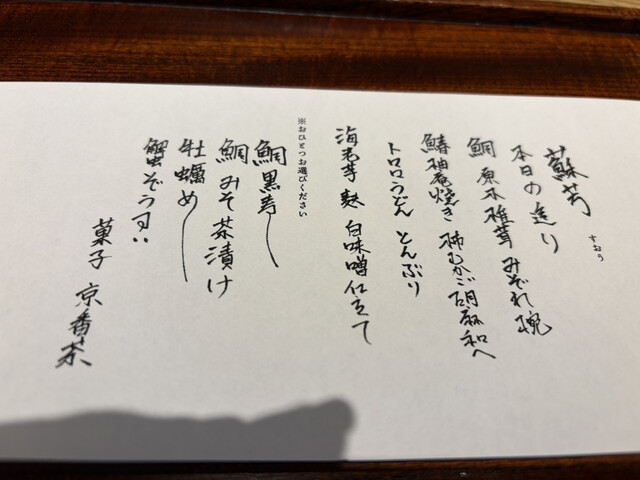 蘇芳
すおう
本日の造り
鯛 原木椎茸 みぞれ椀
鰆柚庵焼き 柿むかご胡麻和へ
トロロうどん とんぶり
海老芋 麩 白味噌仕立て
※おひとつお選びください
鯛黒寿し
鯛みそ茶漬け
牡蠣めし
蟹ぞうすい
菓子 京番茶